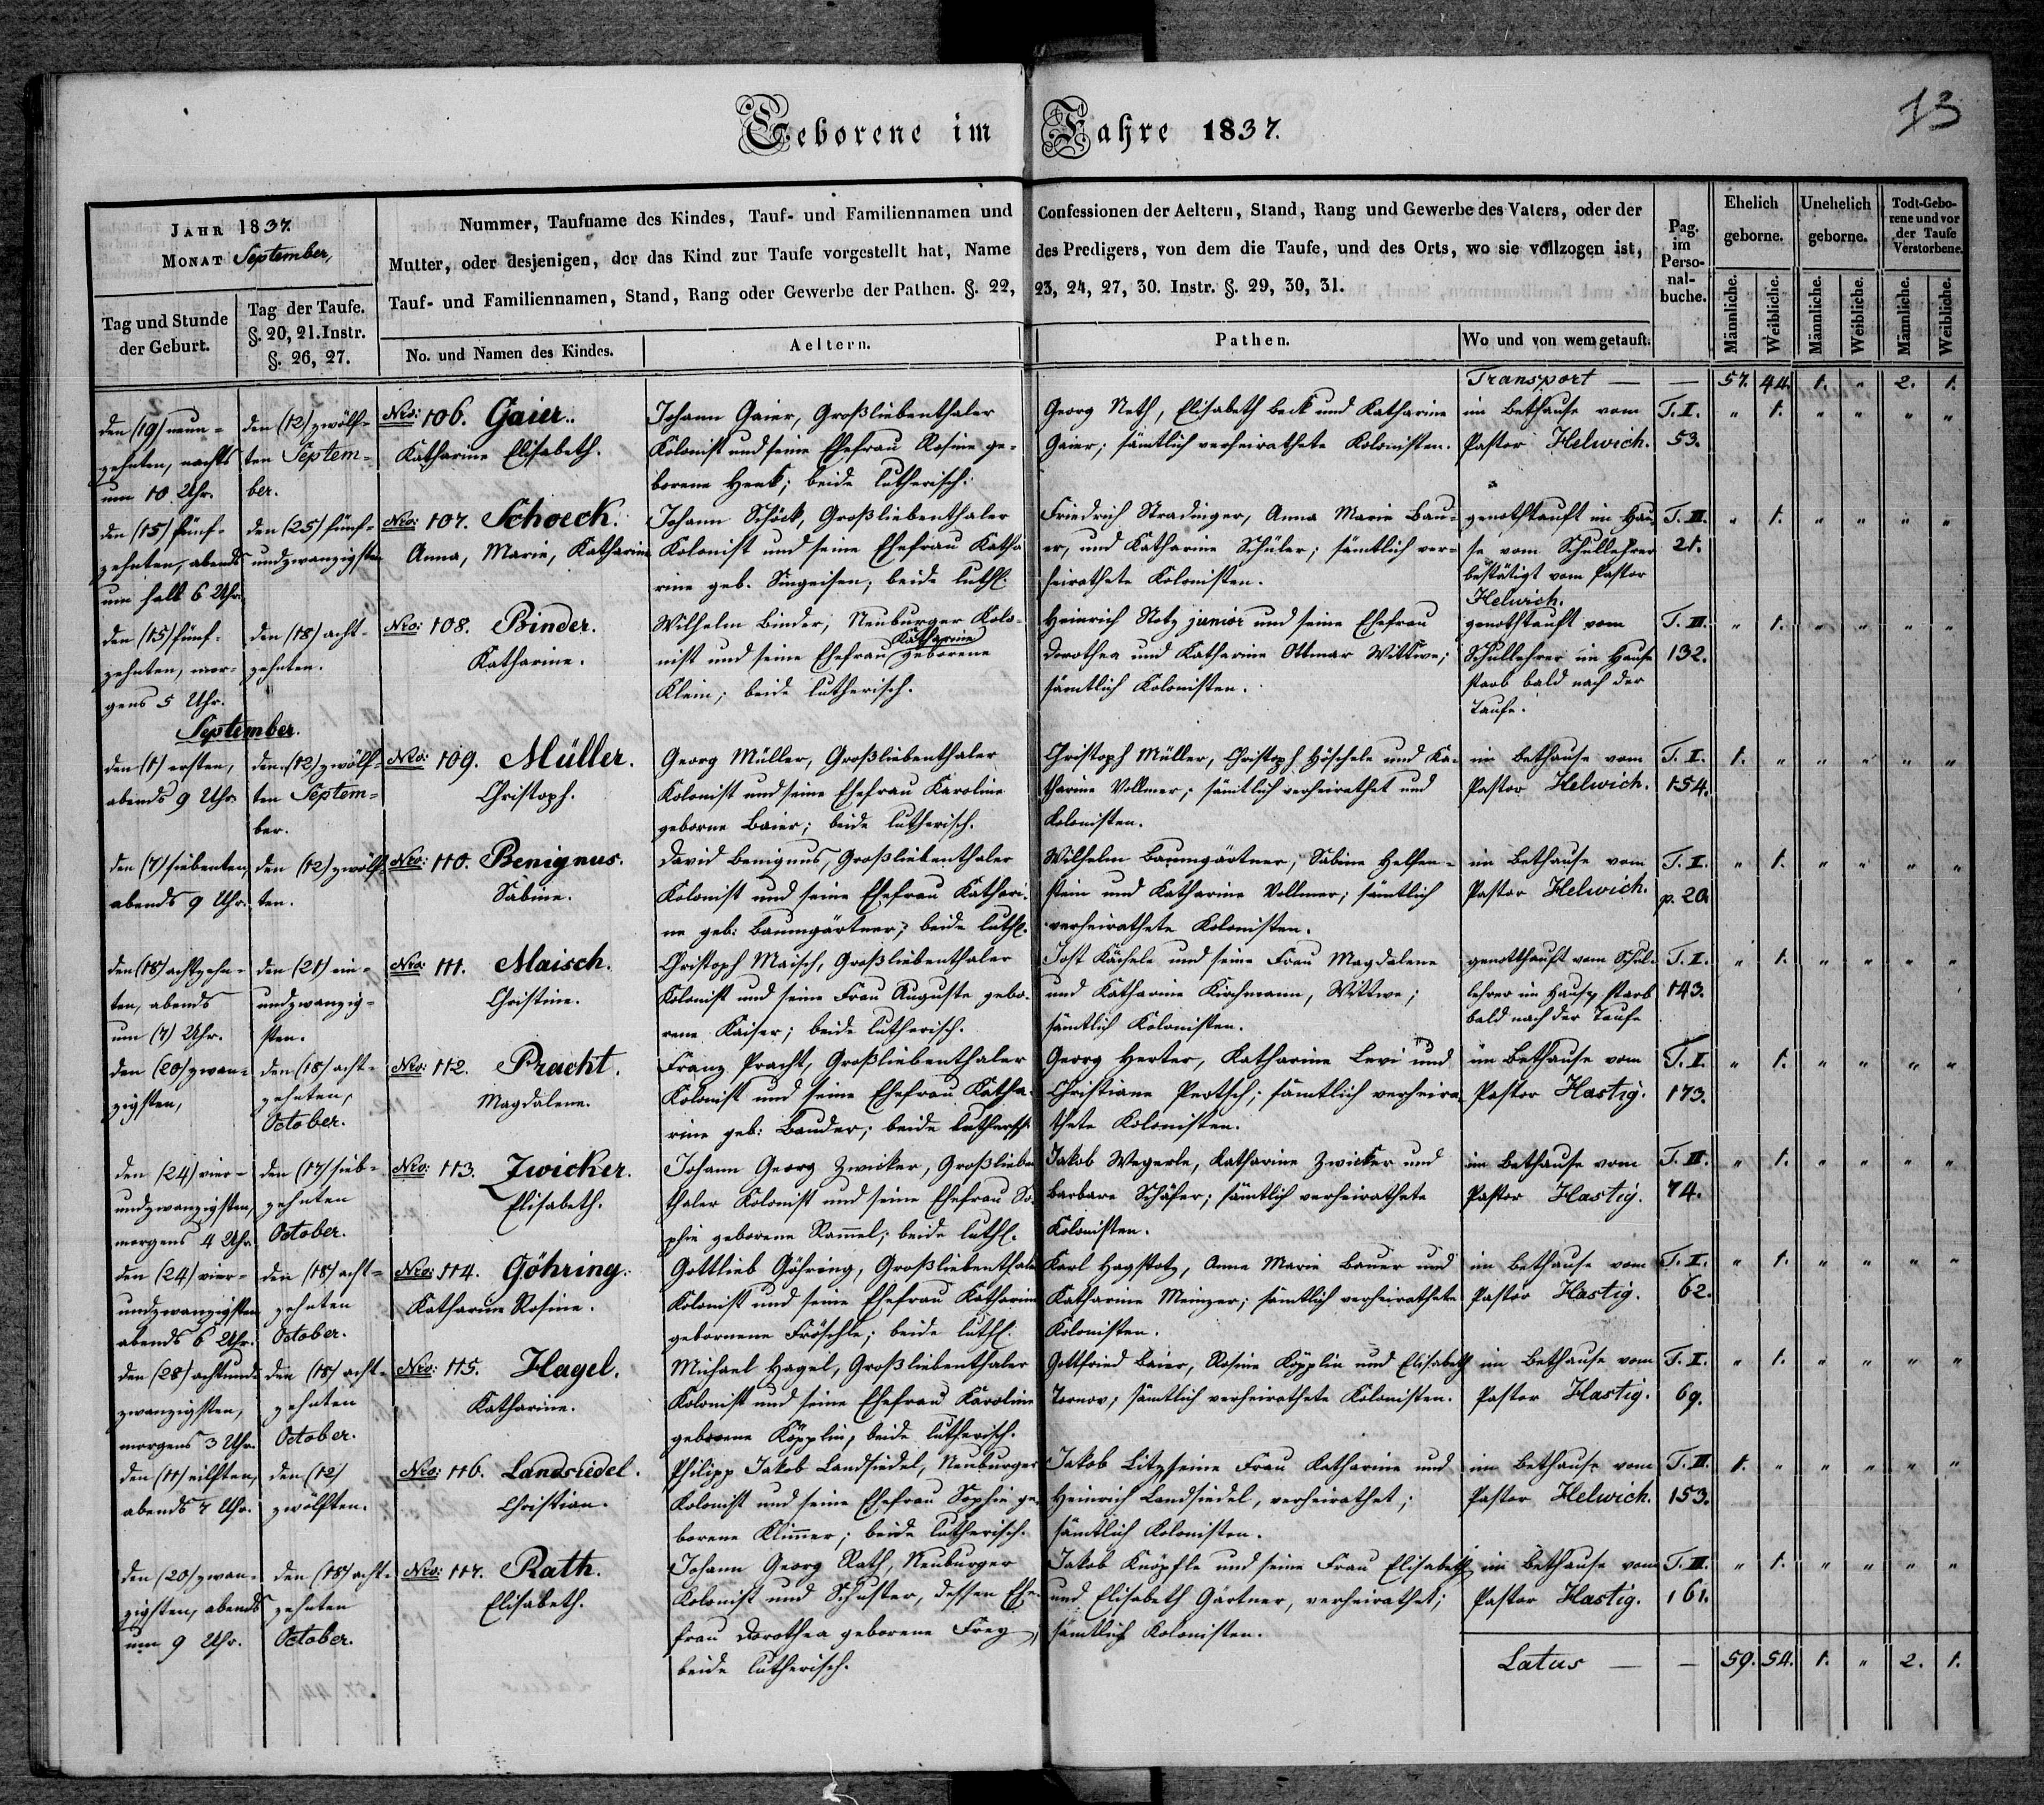 Geborene im Jahre 1837.
13
JAHR 1837.
MONAT September,
Tag und Stunde
der Geburt.
Tag der Taufe.
§. 20, 21. Instr.
§. 26, 27.
Nummer, Taufname des Kindes, Tauf- und Familiennamen und
Mutter, oder desjenigen, der das Kind zur Taufe vorgestellt hat, Name
Tauf- und Familiennamen, Stand, Rang oder Gewerbe der Pathen. §. 22,
No. und Namen des Kindes.
Aeltern.
Confessionen der Aeltern, Stand, Rang und Gewerbe des Vaters, oder der
des Predigers, von dem die Taufe, und des Orts, wo sie vollzogen ist,
23, 24, 27, 30. Instr. §. 29, 30, 31.
Pathen.
Wo und von wem getauft.
Pag.
im
Perso-
nal-
buche.
Ehelich
geborne.
Unehelich
geborne.
Todt-Gebo-
rene und vor
der Taufe
Verstorbene.
Männliche.
Weibliche.
Männliche.
Weibliche.
Männliche.
Weibliche.
Transport — — 57. 44. 1. „ 2. 1.
den (19) neun-
zehnten, nachts
um 10 Uhr.
den (12) zwölf-
ten Septem-
ber.
Nro: 106. Gaier.
Katharine Elisabeth.
Johann Gaier, Großliebenthaler
Kolonist und seine Ehefrau Rosine ge-
borene Henk; beide lutherisch.
Georg Neth, Elisabeth Beck und Katharine
Gaier; sämtlich verheirathete Kolonisten.
im Bethause vom
Pastor Helwich.
T. I.
53.
„ 1. „ „ „ „
den (15) fünf-
zehnten, abends
um halb 6 Uhr.
den (25) fünf-
undzwanzigsten
Nro: 107. Schoeck.
Anna, Marie, Katharine
Johann Schöck, Großliebenthaler
Kolonist und seine Ehefrau Katha
rine geb. Singeisen; beide luth.
Friedrich Stradinger, Anna Marie Bau-
er, und Katharine Schüler; sämtlich ver-
heirathete Kolonisten.
genothtauft im Hau-
se vom Schullehrer
bestätigt vom Pastor
Helwich.
T. III.
21.
„ 1. „ „ „ „
den (15) fünf-
zehnten, mor-
gens 5 Uhr.
den (18) acht-
zehnten.
Nro: 108. Binder.
Katharine.
Wilhelm Binder, Neuburger Kolo-
nist und seine Ehefrau Katharine geborene
Klein; beide lutherisch.
Heinrich Notz junior und seine Ehefrau
Dorothea und Katharine Ottmar Wittwe;
sämtlich Kolonisten.
genothtauft vom
Schullehrer im Hause
starb bald nach der
Taufe.
T. III.
132.
„ 1. „ „ „ „
September.
den (1) ersten,
abends 9 Uhr.
den (12) zwölf-
ten Septem-
ber.
Nro: 109. Müller.
Christoph.
Georg Müller, Großliebenthaler
Kolonist und seine Ehefrau Karoline
geborne Baier; beide lutherisch.
Christoph Müller, Christoph Höschele und Ka-
tharine Vollmer; sämtlich verheirathet und
Kolonisten.
im Bethause vom
Pastor Helwich.
T. I.
154.
1. „ „ „ „ „
den (7) siebenten,
abends 9 Uhr.
den (12) zwölf-
ten.
Nro: 110. Benignus.
Sabine.
David Benignus, Großliebenthaler
Kolonist und seine Ehefrau Kathari-
ne geb: Baumgärtner; beide luth.
Wilhelm Baumgärtner, Sabine Helfen-
stein und Katharine Vollmer; sämtlich
verheirathete Kolonisten.
im Bethause vom
Pastor Helwich.
T. I.
p. 20.
„ 1. „ „ „ „
den (18) achtzehn-
ten, abends
um (7) Uhr.
den (21) ein-
undzwanzig-
sten.
Nro: 111. Maisch.
Christine.
Christoph Maisch, Großliebenthaler
Kolonist und seine Frau Auguste gebo-
rene Kaiser; beide lutherisch.
Jost Kächele und seine Frau Magdalene
und Katharine Kirchmann, Wittwe;
sämtlich Kolonisten.
genothtauft vom Schul-
lehrer im Hause starb
bald nach der Taufe
T. I.
143.
„ 1. „ „ „ „
den (20) zwan-
zigsten,
den (18) acht-
zehnten,
October.
Nro: 112. Pracht.
Magdalene.
Franz Pracht, Großliebenthaler
Kolonist und seine Ehefrau Katha-
rine geb: Bauder; beide luthersch.
Georg Herter, Katharine Levi und
Christiane Pertsch; sämtlich verheira-
thete Kolonisten.
im Bethause vom
Pastor Hastig.
T. I.
173.
„ 1. „ „ „ „
den (24) vier-
undzwanzigsten,
morgens 4 Uhr.
den (17) sieb-
zehnten
October.
Nro: 113. Zwicker.
Elisabeth.
Johann Georg Zwicker, Großlieben
thaler Kolonist und seine Ehefrau So-
phie geborene Rammel; beide luth.
Jakob Wegerle, Katharine Zwicker und
Barbara Schäfer; sämtlich verheirathete
Kolonisten.
im Bethause vom
Pastor Hastig.
T. III.
74.
„ 1. „ „ „ „
den (24) vier-
undzwanzigsten
abends 6 Uhr.
den (18) acht-
zehnten
October.
Nro: 114. Göhring.
Katharine Rosine.
Gottlieb Göhring, Großliebenthaler
Kolonist und seine Ehefrau Katharine
gebornene Fröschle; beide luth.
Karl Hagstotz, Anne Marie Bauer und
Katharine Meinzer; sämtlich verheirathete
Kolonisten.
im Bethause vom
Pastor Hastig.
T. I.
62.
„ 1. „ „ „ „
den (28) achtund-
zwanzigsten,
morgens 3 Uhr.
den (18) acht-
zehnten
October.
Nro: 115. Hagel.
Katharine.
Michael Hagel, Großliebenthaler
Kolonist und seine Ehefrau Karoline
geborene Köpplin; beide lutherisch.
Gottfried Baier, Rosine Köpplin und Elisabeth
Tornov; sämtlich verheirathete Kolonisten.
im Bethause vom
Pastor Hastig.
T. I.
69.
„ 1. „ „ „ „
den (11) eilften,
abends 7 Uhr.
den (12)
zwölften.
Nro: 116. Landsiedel.
Christian.
Philipp Jakob Landsiedel, Neuburger
Kolonist und seine Ehefrau Sophie ge-
borene Klimmer; beide lutherisch.
Jakob Litz, seine Frau Katharine und
Heinrich Landsiedel, verheirathet;
sämtlich Kolonisten.
im Bethause vom
Pastor Helwich.
T. III.
153.
1. „ „ „ „ „
den (20) zwan-
zigsten, abends
um 9 Uhr.
den (18) acht-
zehnten
October.
Nro: 117. Rath.
Elisabeth.
Johann Georg Rath, Neuburger
Kolonist und Schuster, dessen Ehe-
frau Dorothea geborene Frey;
beide lutherisch.
Jakob Knöpfle und seine Frau Elisabeth
und Elisabeth Gärtner, verheirathet;
sämtlich Kolonisten.
im Bethause vom
Pastor Hastig.
T. III.
161.
„ 1. „ „ „ „
Latus — — 59. 54. 1. „ 2. 1.